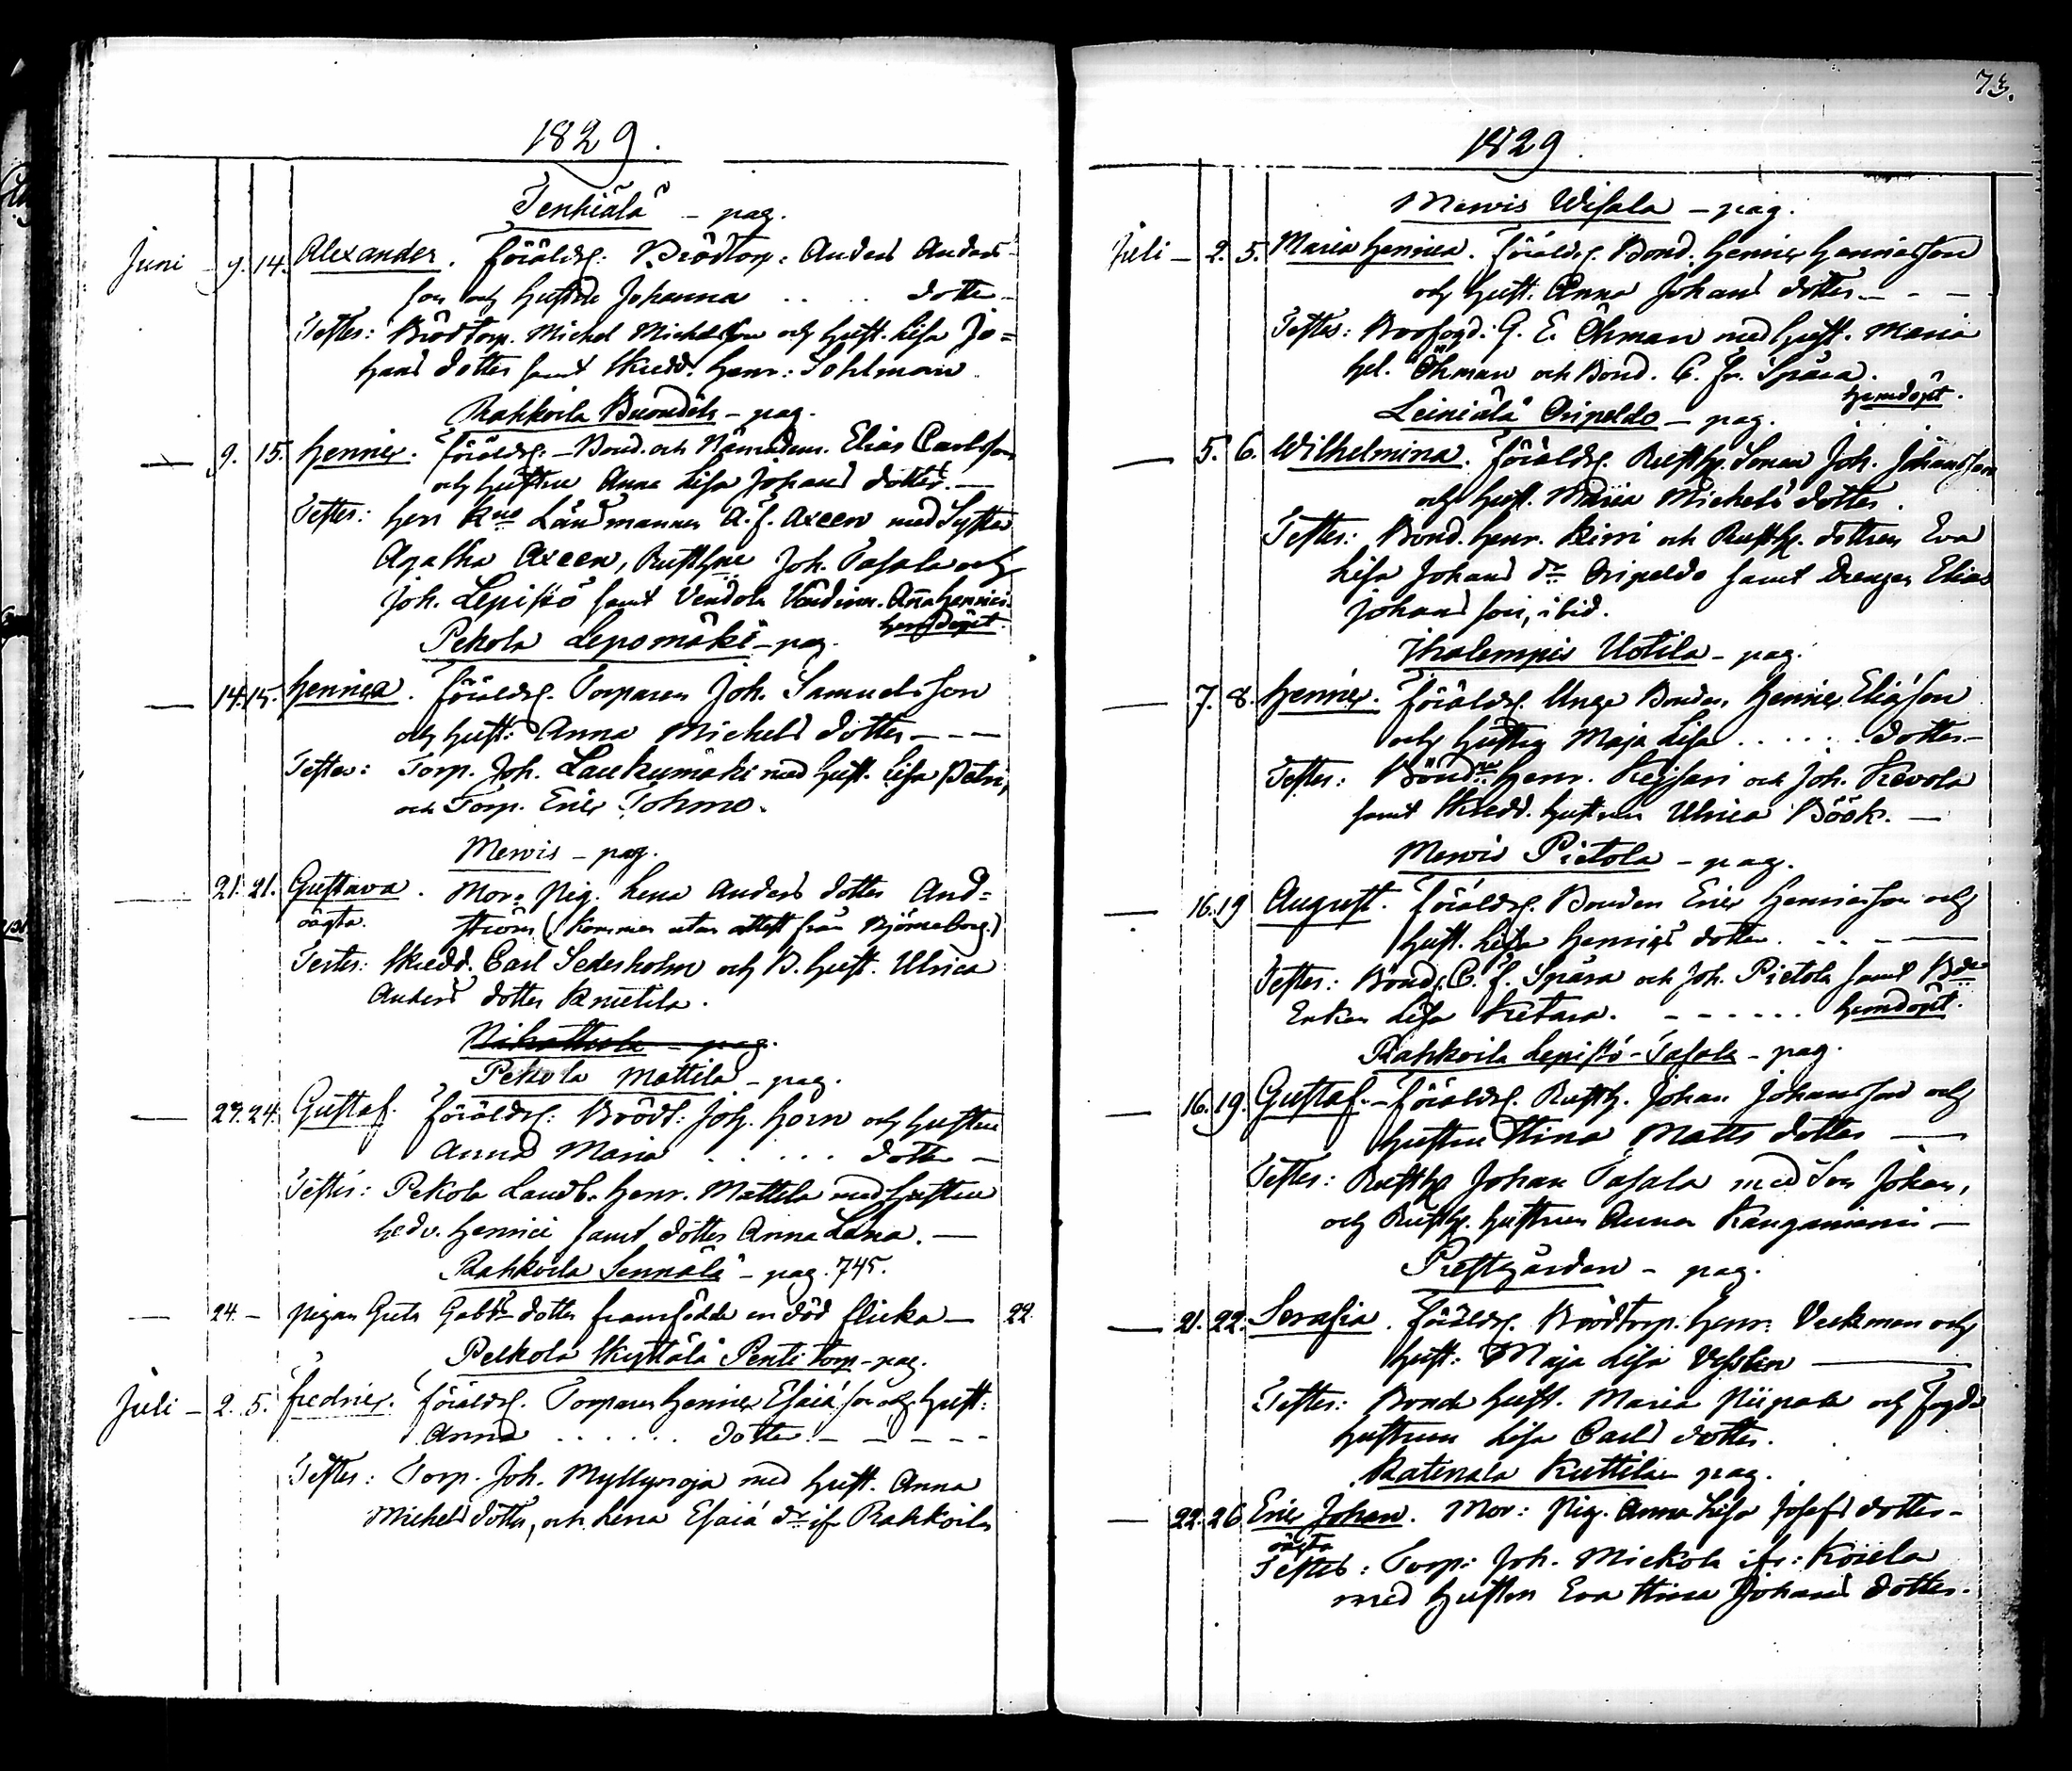 1829.
Tenhiälä - pag.
Juni - 9. 14. Alexander. Föräldr: Brödtorp. Anders Anders-
son och Hustru Johanna . . . . dotter -
Testes: Brödtorp. Michel Michelsson och Hust. Lisa Jo=
hans dotter samt Skredd. Henr: Sohlman
Rahkoila Buondila - pag.
— 9. 15. Henric. Föräldr: - Bond. och Nämndem. Elias Carlsson
och Hustru Anna Lisa Johans dotter. —
Testes: Herr Länsmannen A. F. Axeen med Syster
Agatha Axeen, Rusth Joh. Tasala och
Joh. Lepistö samt Vendola Anna Henrics
Hemdöpt.
Pekola Lepomäki - pag.
— 14. 15. Henrica. Föräldr. Torparen Joh. Samuelsson
och Hust: Anna Michels dotter — — —
Testes: Torp. Joh. Laukumäki med Hust. Lisa Petri,
och Torp. Eric Tohmo.
Mervis - pag.
— 21. 21. Gustava. Mor: Pig. Lena Anders dotter And=
oägta. ström (Kommen utan attest från Björneborg.)
Testes: Skredd. Carl Sedersholm och B. Hust. Ulrica
Anders dotter Knuutila.
Pekola Mattila - pag.
— 23. 24. Gustaf. Föräldr: Brödt: Joh. Horn och Hustru
Anna Maria . . . . . dotter —
Testes: Pekola Landb. Henr. Mattila med Hustru
Hedv. Henrici samt dotter Anna Lena. —
Rahkoila Sennälä - pag. 745.
— 24. - pigan Greta Gabrs dotter framfödde en död flicka — 22.
Pelkola Skyttälä Penti torp - pag.
Juli - 2. 5. Fredric. Föräldr. Torparen Henric Esaiæ son och Hust:
Anna . . . . . . dotter. — — — —
Testes: Torp. Joh. Myllyoja med Hust. Anna
Michels dotter, och Lena Esaiæ dr ifr Rahkoila
73.
1829.
Mervis Wisala - pag.
Juli - 2. 5. Maria Henrica. Föräldr. Bond. Henric Henricsson
och Hust. Anna Johans dotter. — - —
Testes: G. E. Öhman med Hust. Maria
Hel. Öhman och Bond. C. Fr. Spåra.
Hemdöpt.
Leiniälä Oripeldo - pag.
— 5. 6. Wilhelmina. Föräldr. Rusth. Sonen Joh. Johansson
och Hust. Maria Michels dotter.
Testes: Bond. Henr. Kirri och Rusth. dottren Eva
Lisa Johans dr Oripeldo samt Drengen Elias
Johans son, ibid.
Ihalempis Uotila - pag.
— 7. 8. Henric. Föräldr. Unga Bonden Henric Eliæson
och Hustru Maja Lisa . . . . . . dotter —
Testes: Bönd Henr. Keijsari och Joh. Kevola
samt Skredd. Hustrun Ulrica Böök. —
Mervis Pietola - pag.
— 16. 19 August. Föräldr. Bonden Eric Henricsson och
Hust. Lisa Henrics dotter. . . - —
Testes: Bönd. C. F. Spåra och Joh. Pietola samt
Enkan Lisa Ketara. - - - - - - Hemdöpt.
Rahkoila Lepistö - Tasala - pag.
— 16. 19. Gustaf. - Föräldr. Rusth. Johan Johansson och
Hustru Stina Matts dotter —
Testes: Rusth Johan Tasala med Son Johan,
och Rusth. Hustrun Anna Kanganiemi —
Prestgården - pag.
— 21. 22. Serafia. Föräldr. Brödtorp. Henr: Veckman och
Hust: Maja Lisa —
Testes: Bonde Hust. Maria Niipala och Fogde
Hustrun Lisa Carls dotter.
Ratenala Kuttila - pag.
— 22. 26 Eric Johan. Mor: Pig. Anna Lisa Josefs dotter -
oägta
Testes: Torp: Joh. Mickola ifr: Koiela
med Hustru Eva Stina Johans dotter.